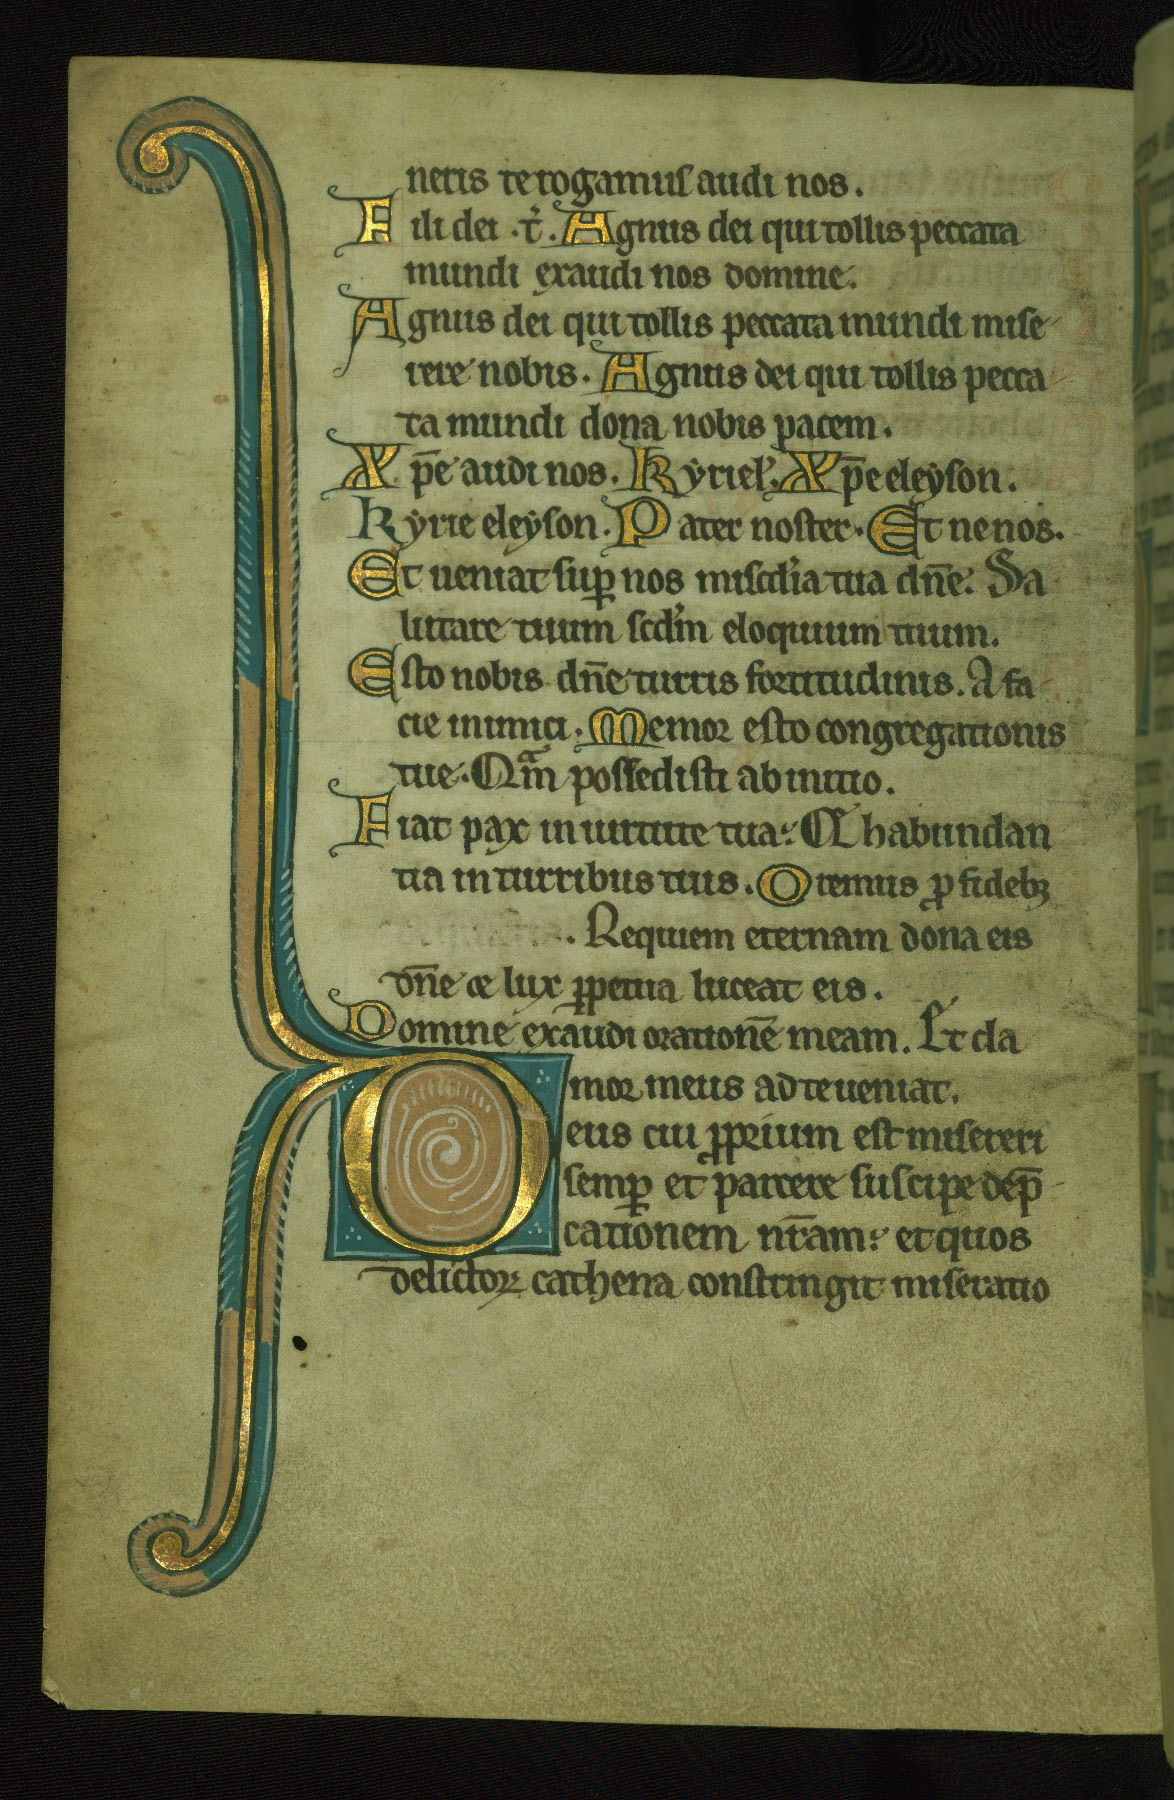 neris te rogamus audi nos.
Fili dei .t̉. Agnus dei qui tollis peccata
mundi exaudi nos domine.
Agnus dei qui tollis peccata mundi mise
rere nobis. Agnus dei qui tollis pecca
ta mundi dona nobis pacem.
Xp̄e audi nos. Kyriel̉. Xp̄e eleyson.
Kyrie eleyson. Pater noster. Et ne nos.
Et ueniat suꝑ nos misc̄dia tua dn̄e. Sa
lutare tuum scd̄m eloquium tuum.
Esto nobis dn̄e turris fortitudinis. A fa
cie inimici. Memor esto congregationis
tue. Qm̄ possedisti ab initio.
Fiat pax in uirtute tua. Et habundan
tia in turribus tuis. Oremus ꝓ fidelibꝫ
. Requiem eternam dona eis
dn̄e et lux ꝑpetua luceat eis.
Domine exaudi orationē meam. Et cla
mor meus ad te ueniat.
Deus cui ꝓprium est misereri
semꝑ et parcere suscipe dep̄
cationem nr̄am. et quos
delictoꝝ cathena constringit miseratio